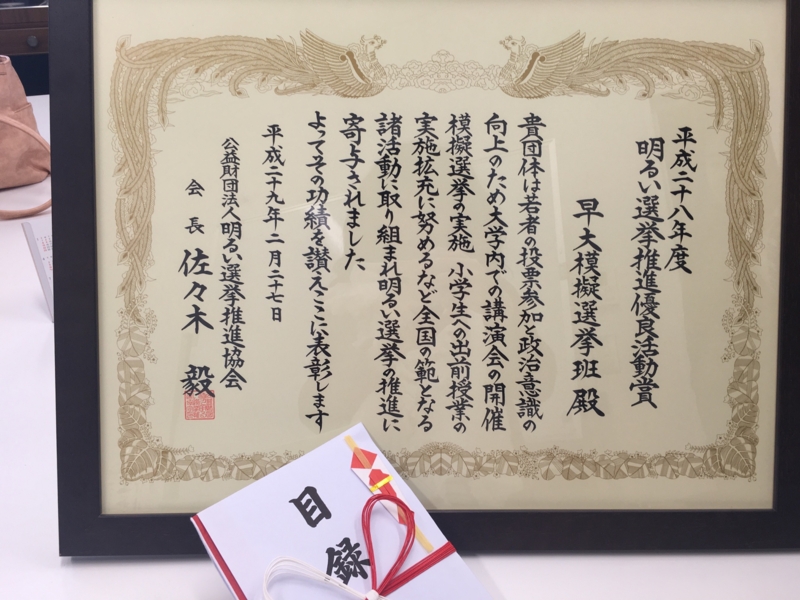 平成二十八年度
明るい選挙推進優良活動賞
早大模擬選挙班 殿
貴団体は若者の投票参加と政治意識の
向上のため大学内での講演会の開催
模擬選挙の実施 小学生への出前授業の
実施拡充に努めるなど全国の範となる
諸活動に取り組まれ明るい選挙の推進に
寄与されました
よってその功績を讃えここに表彰します
平成二十九年二月二十七日
公益財団法人 明るい選挙推進協会
会長 佐々木 毅
目録